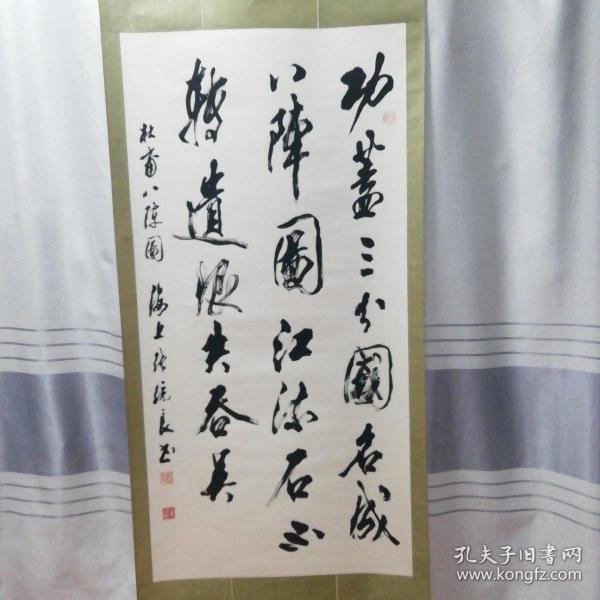 功蓋三分國名成
八陣圖江流石不
轉遺恨失吞吴
杜甫八陳圖 海上張統良书
孔夫子旧書网
www.kongfz.com